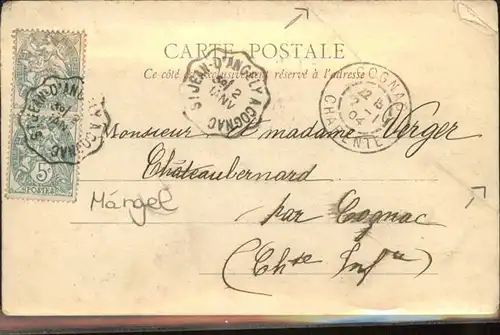 CARTE POSTALE
Ce côté est exclusivement réservé à l'adresse
ST JEAN-D'ANGELY A COGNAC
2
JANV
COGNAC
CHARENTE
ST JEAN-D'ANGELY A COGNAC
2
JANV
5c
POSTES
Monsieur et madame Verger
Châteaubernard
Mángel
par Cognac
(Chte Infre)